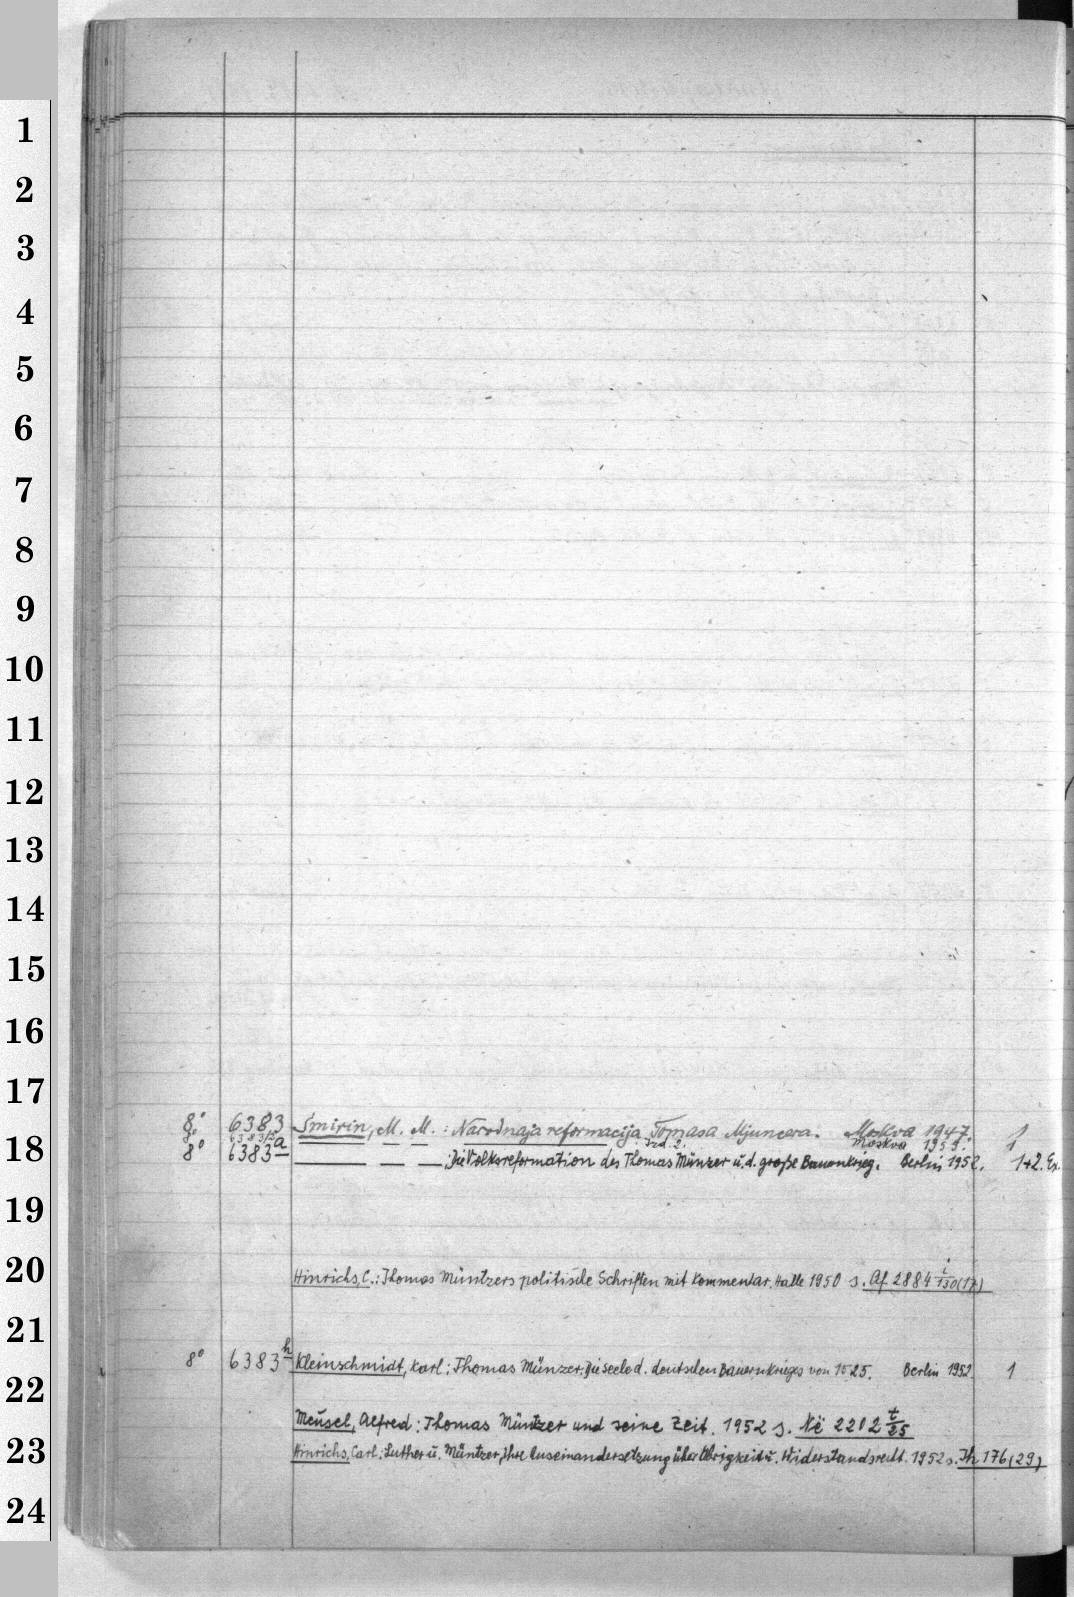 1
2
3
4
5
6
7
8
9
10
11
12
13
14
15
16
17
8° 6383 Smirin, M. M.: Narodnaja reformacija Tomasa Mjuncera. Moskva 1947. 1
8° 6383/2 — — Izd. 2. Moskva 1955. 1
18
8° 6383a — — —: Die Volksreformation des Thomas Münzer u. d. große Bauernkrieg. Berlin 1952. 1+2. Ex.
19
20
Hinrichs, C.: Thomas Müntzers politische Schriften mit Kommentar. Halle 1950 s. Af 2884 i/130(17)
21
8° 6383h Kleinschmidt, Karl: Thomas Münzer. Die Seele d. deutschen Bauernkrieges von 1525. Berlin 1952 1
22
Meusel, Alfred: Thomas Müntzer und seine Zeit. 1952 s. Në 2202 t/25
23
Hinrichs, Carl: Luther u. Müntzer, Ihre Auseinandersetzung über Obrigkeit u. Widerstandsrecht. 1952 s. Th 176(29)
24